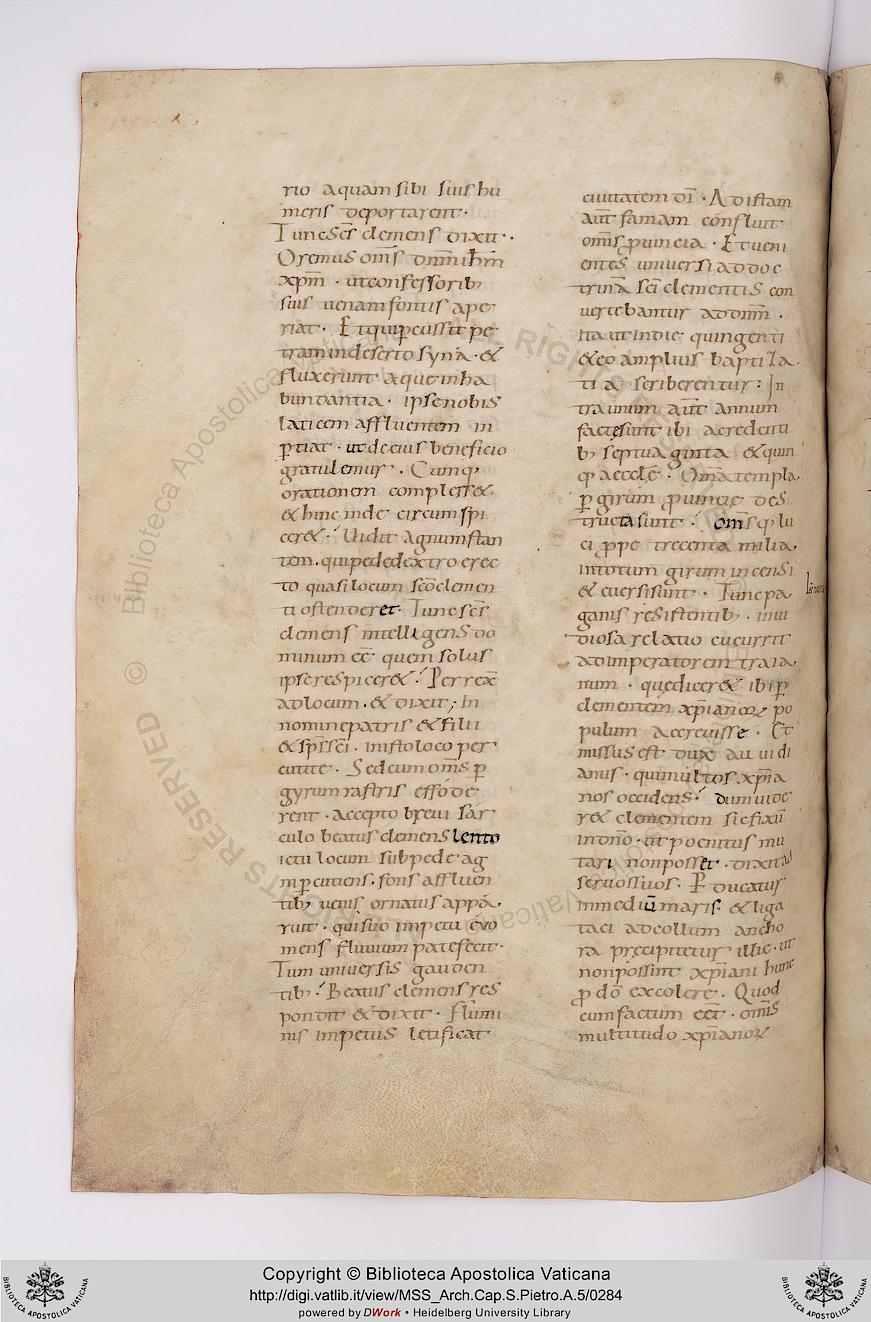 rio aquam sibi suis hu
meris deportarent·
Tunc sc̄s clemens dixit··
Oremus om̄s dn̄m ih̄m
xp̄m · ut confessorib;
suis uenam fontis ape
riat· Et qui ꝑcussit pe
tram in deserto syna·&
fluxerunt aque in ha
bundantia· ipse nobis
laticem affluentem in
ꝑtiat· ut de eius beneficio
gratulemur·. Cumq;
orationem compless&·
& hinc inde circumspi
cer&·´ Uidit agnum stan
tem·qui pede dextro erec
to quasi locum sc̄o clemen
ti ostenderet· Tunc sc̄s
clemens intelligens do
minum ee᷎ quem solus
ipse respicer&·´ Perrex̄
ad locum·& dixit; In
nomine patris & filii
& sp̄s sc̄i· in isto loco per
cutite· Sed cum om̄s ꝑ
gyrum rastris effode
rent· accepto breui sar
culo beatus clemens lento
ictu locum sub pede ag
ni ꝑcutiens·fons affluen
tib; uenis ornatus appa
ruit· qui suo impetu euo
mens fluuium patefecit·
Tum uniuersis gauden
tib;´ Beatus clemens res
pondit & dixit· Flumi
nis impetus letificat
ciuitatem dī· Ad istam
aut̄ famam confluit
om̄s ꝓuincia· Et ueni
entes uniuersi ad doc
trinā sc̄i clementis con
uertebantur ad dn̄m·
Ita ut in die quingenti
& eo amplius baptiza
ti a scriberentur: In
tra unum aut̄ annum
factę sunt ibi a credenti
b; septuaginta & quin
q; aeccle᷎· Om̄a templa
ꝑ girum ꝓuincie des
tructa sunt·´ om̄sq; lu
ci ꝓpe trecenta milia
in totum girum incensi
& euersi sunt· Tunc pa
ganis resistentib;· inui
diosa relatio cucurrit
ad imperatorem traia
num· que dicer& ibi ꝑ
clementem xp̄ianoꝝ po
pulum accreuisse· Et
missus est dux aufidi
anus· qui multos xp̄ia
nos occidens·´ dum uide
r& clementem sic fixū
in dn̄o· ut poenitus mu
tari non posset· dixit ad
seruos suos· Pducatus
in mediū maris· & liga
ta ei ad collum ancho
ra precipitetur illic· ut
non possint xp̄iani hunc
ꝓ dō excolere· Quod
cum factum eet̄· om̄is
multitudo xp̄ianoꝝ
Copyright © Biblioteca Apostolica Vaticana
http://digi.vatlib.it/view/MSS_Arch.Cap.S.Pietro.A.5/0284
powered by DWork • Heidelberg University Library